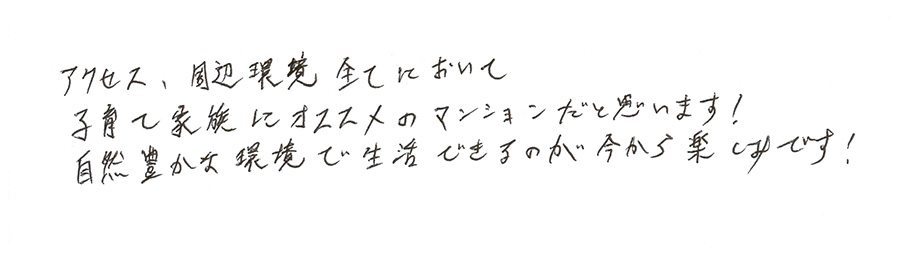 アクセス、周辺環境全てにおいて
子育て家族にオススメのマンションだと思います!
自然豊かな環境で生活できるのが今から楽しみです!